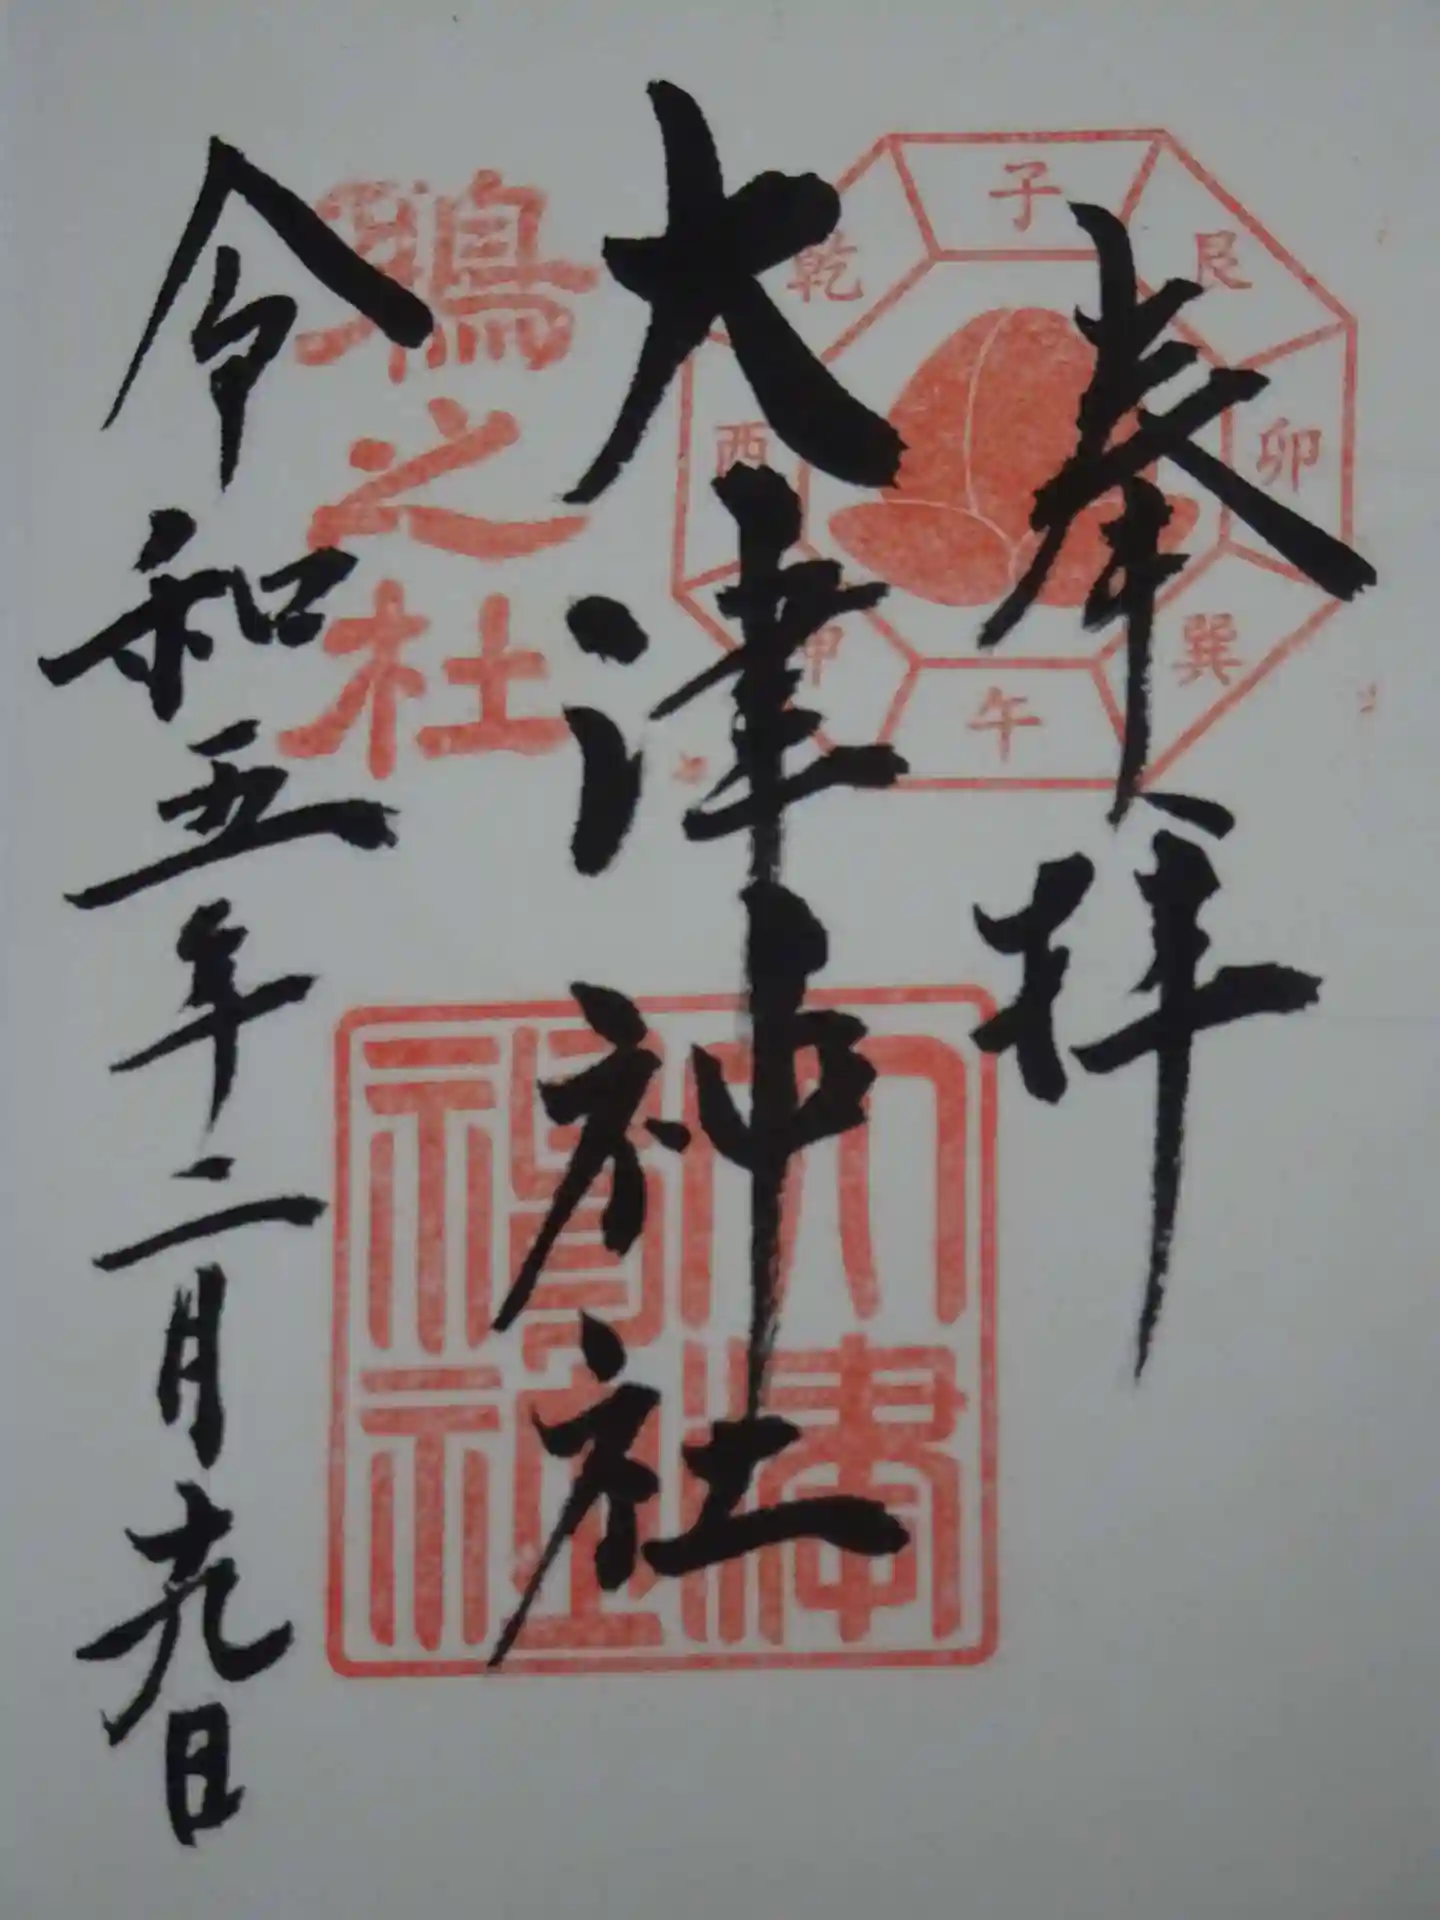 奉拝
子
艮
卯
巽
午
申
酉
乾
大津神社
之社
令和五年二月十九日